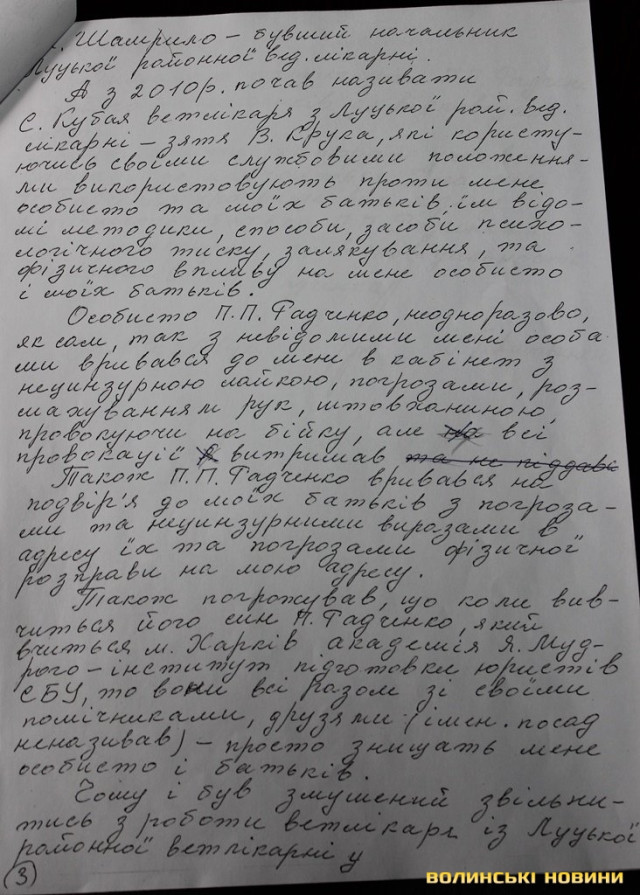 . Шамрило – бувший начальник
Луцької районної вед. лікарні.
А з 2010р. почав називати
Є. Кубая ветлікаря з Луцької рай. вед.
лікарні – зятя В. Крука, які користу-
ючись своїми службовими положення-
ми використовують проти мене
особисто та моїх батьків їм відо-
мі методики, способи, засоби психо-
логічного тиску, залякування, та
фізичного впливу на мене особисто
і моїх батьків.
Особисто П.П. Фадченко, неодноразово,
як сам, так з невідомими мені особа
ми вривався до мене в кабінет з
нецинзурною лайкою, погрозами, роз-
махуванням рук, штовханиною,
провокуючи на бійку, але на всі
провокації я витримав та не піддаві
Також П.П. Фадченко вривався на
подвір'я до моїх батьків з погроза-
ми та нецинзурними виразами в
адресу їх та погрозами фізичної
розправи на мою адресу.
Також погрожував, що коли вив-
читься його син П. Фадченко, який
вчиться м. Харків академія Я. Муд-
рого – інститут підготовки юристів
СБУ, то вони всі разом зі своїми
помічниками, друзями (імен. посад
неназивав) – просто знищать мене
особисто і батьків.
Чому і був змушений звільни-
тись з роботи ветлікаря із Луцької
районної ветлікарні у
3
ВОЛИНСЬКІ НОВИНИ